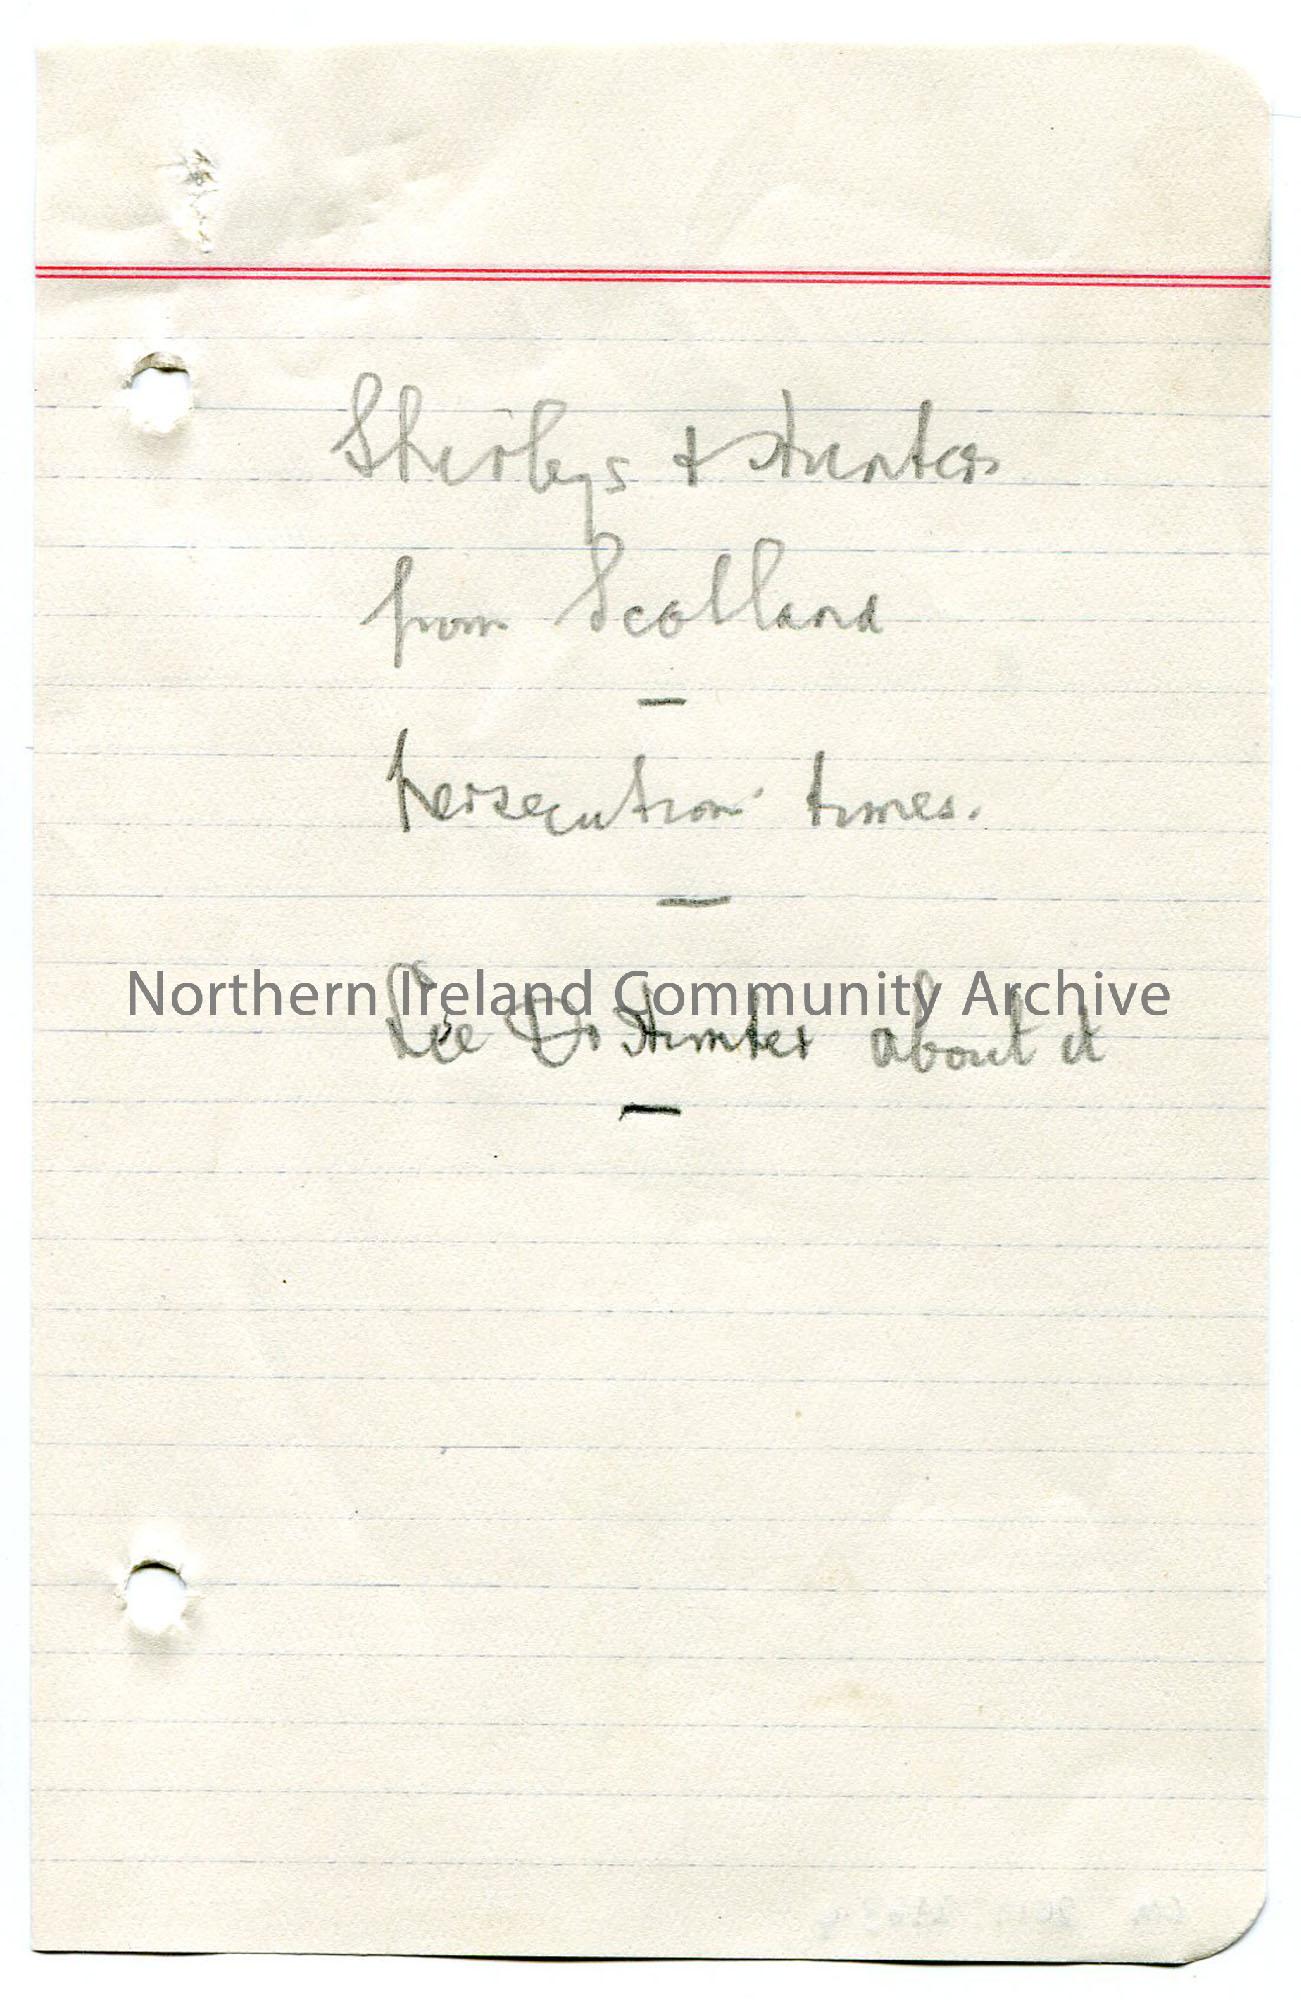 Shirleys & Hunters
from Scotland
—
persecution times.
—
Northern Ireland Community Archive
See Dr Hunter about it
—